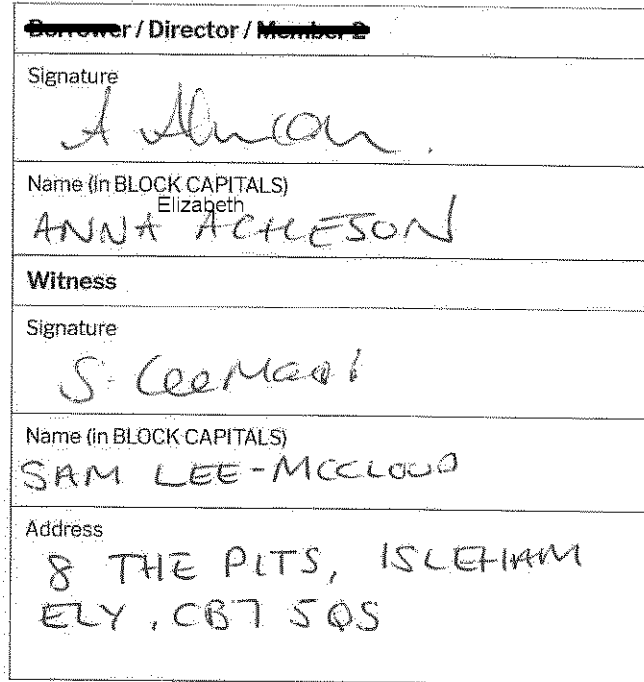 Borrower / Director / Member 2
Signature
Name (in BLOCK CAPITALS)
Elizabeth
ANNA ACHESON
Witness
Signature
Name (in BLOCK CAPITALS)
SAM LEE-MCCLOUD
Address
8 THE PITS, ISLEHAM
ELY, CB7 5QS